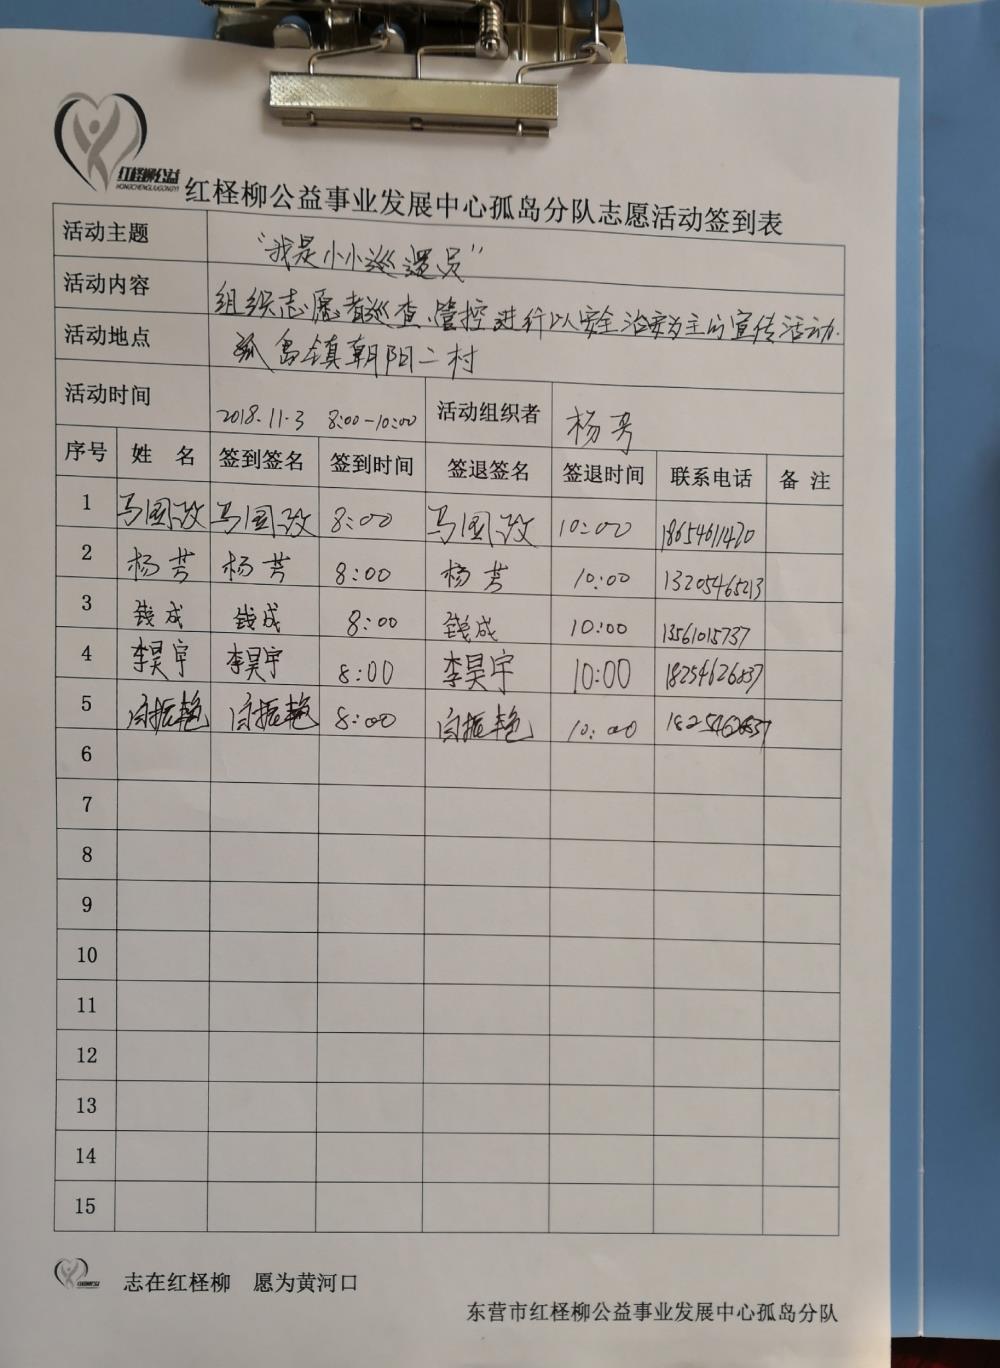 红柽柳公益
HONGCHENGLIUGONGYI
红柽柳公益事业发展中心孤岛分队志愿活动签到表
活动主题 “我是小小巡逻员”
活动内容 组织志愿者巡查、管控进行以安全治安为主的宣传活动.
活动地点 孤岛镇朝阳二村
活动时间 2018.11.3 8:00-10:00 活动组织者 杨芳
序号 姓 名 签到签名 签到时间 签退签名 签退时间 联系电话 备 注
1 马国政 马国政 8:00 马国政 10:00 18654611420
2 杨芳 杨芳 8:00 杨芳 10:00 13205465213
3 钱成 钱成 8:00 钱成 10:00 13561015737
4 李昊宇 李昊宇 8:00 李昊宇 10:00 18254626837
5 8:00 10:00 18254626837
6
7
8
9
10
11
12
13
14
15
志在红柽柳 愿为黄河口
东营市红柽柳公益事业发展中心孤岛分队